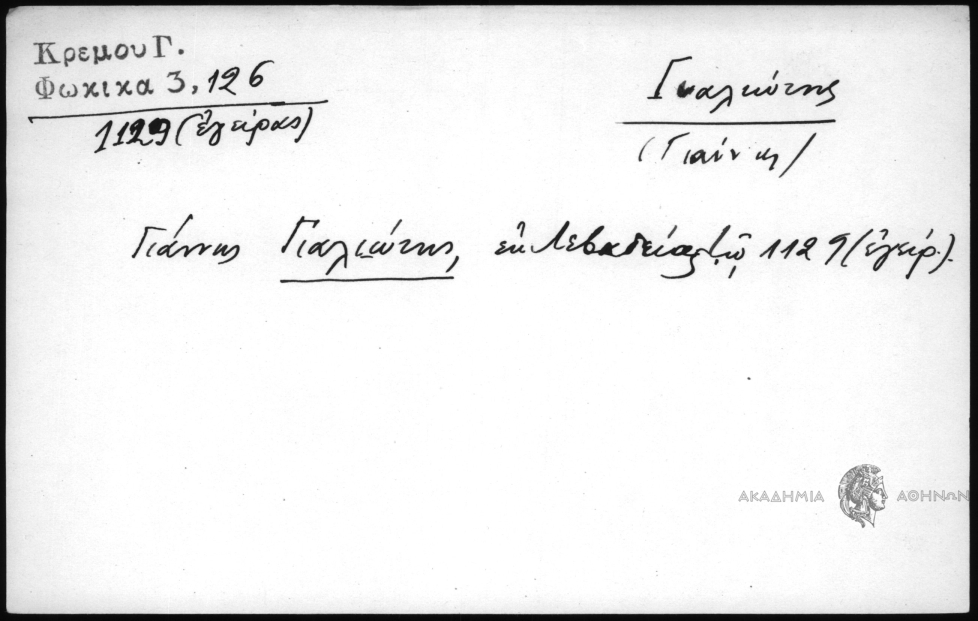 Κρεμου Γ.
Φωκικα 3, 126
1129 (ἐγείρας)
Γυαλιώτης
(Γιάννης)
Γιάννης Γιαλιώτης, ἐκ Λεβαδείας τῷ 1129 (ἐγείρ.).
ΑΚΑΔΗΜΙΑ ΑΘΗΝΩΝ